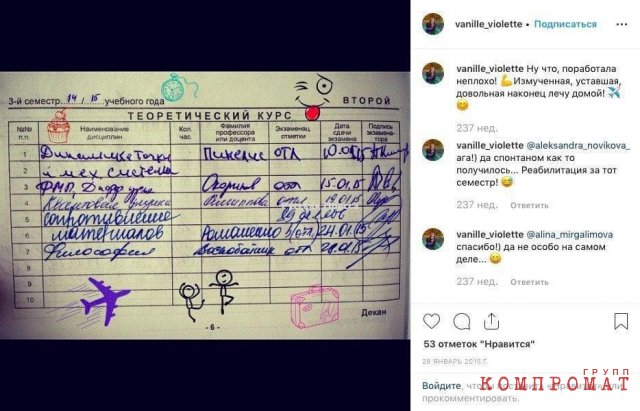 3-й семестр 14 / 15 учебного года
ВТОРОЙ
ТЕОРЕТИЧЕСКИЙ КУРС
№№ п. п.
Наименование дисциплин
Кол. час.
Фамилия профессора или доцента
Экзаменац. отметки
Дата сдачи экзамена
Подпись экзаменатора
1 Динамика точки отл
2 и мех. системы
3 отл 15.01.15
4 отл 19.01.15
5 сопротивление
6 материалов Романенко 24.01.15
7 Философия отл
8
9
10
- 6 -
Декан
vanille_violette • Подписаться
vanille_violette Ну что, поработала
неплохо! 💪Измученная, уставшая,
довольная наконец лечу домой! ✈️
😊
237 нед.
vanille_violette @aleksandra_novikova_
ага!) да спонтаном как то
получилось... Реабилитация за тот
семестр! 😅
237 нед. Ответить
vanille_violette @alina_mirgalimova
спасибо!) да не особо на самом
деле... 😄
237 нед. Ответить
53 отметок "Нравится"
28 ЯНВАРЬ 2015 Г.
Войдите, чтобы
прокомментировать.
ГРУПП
КОМПРОМАТ